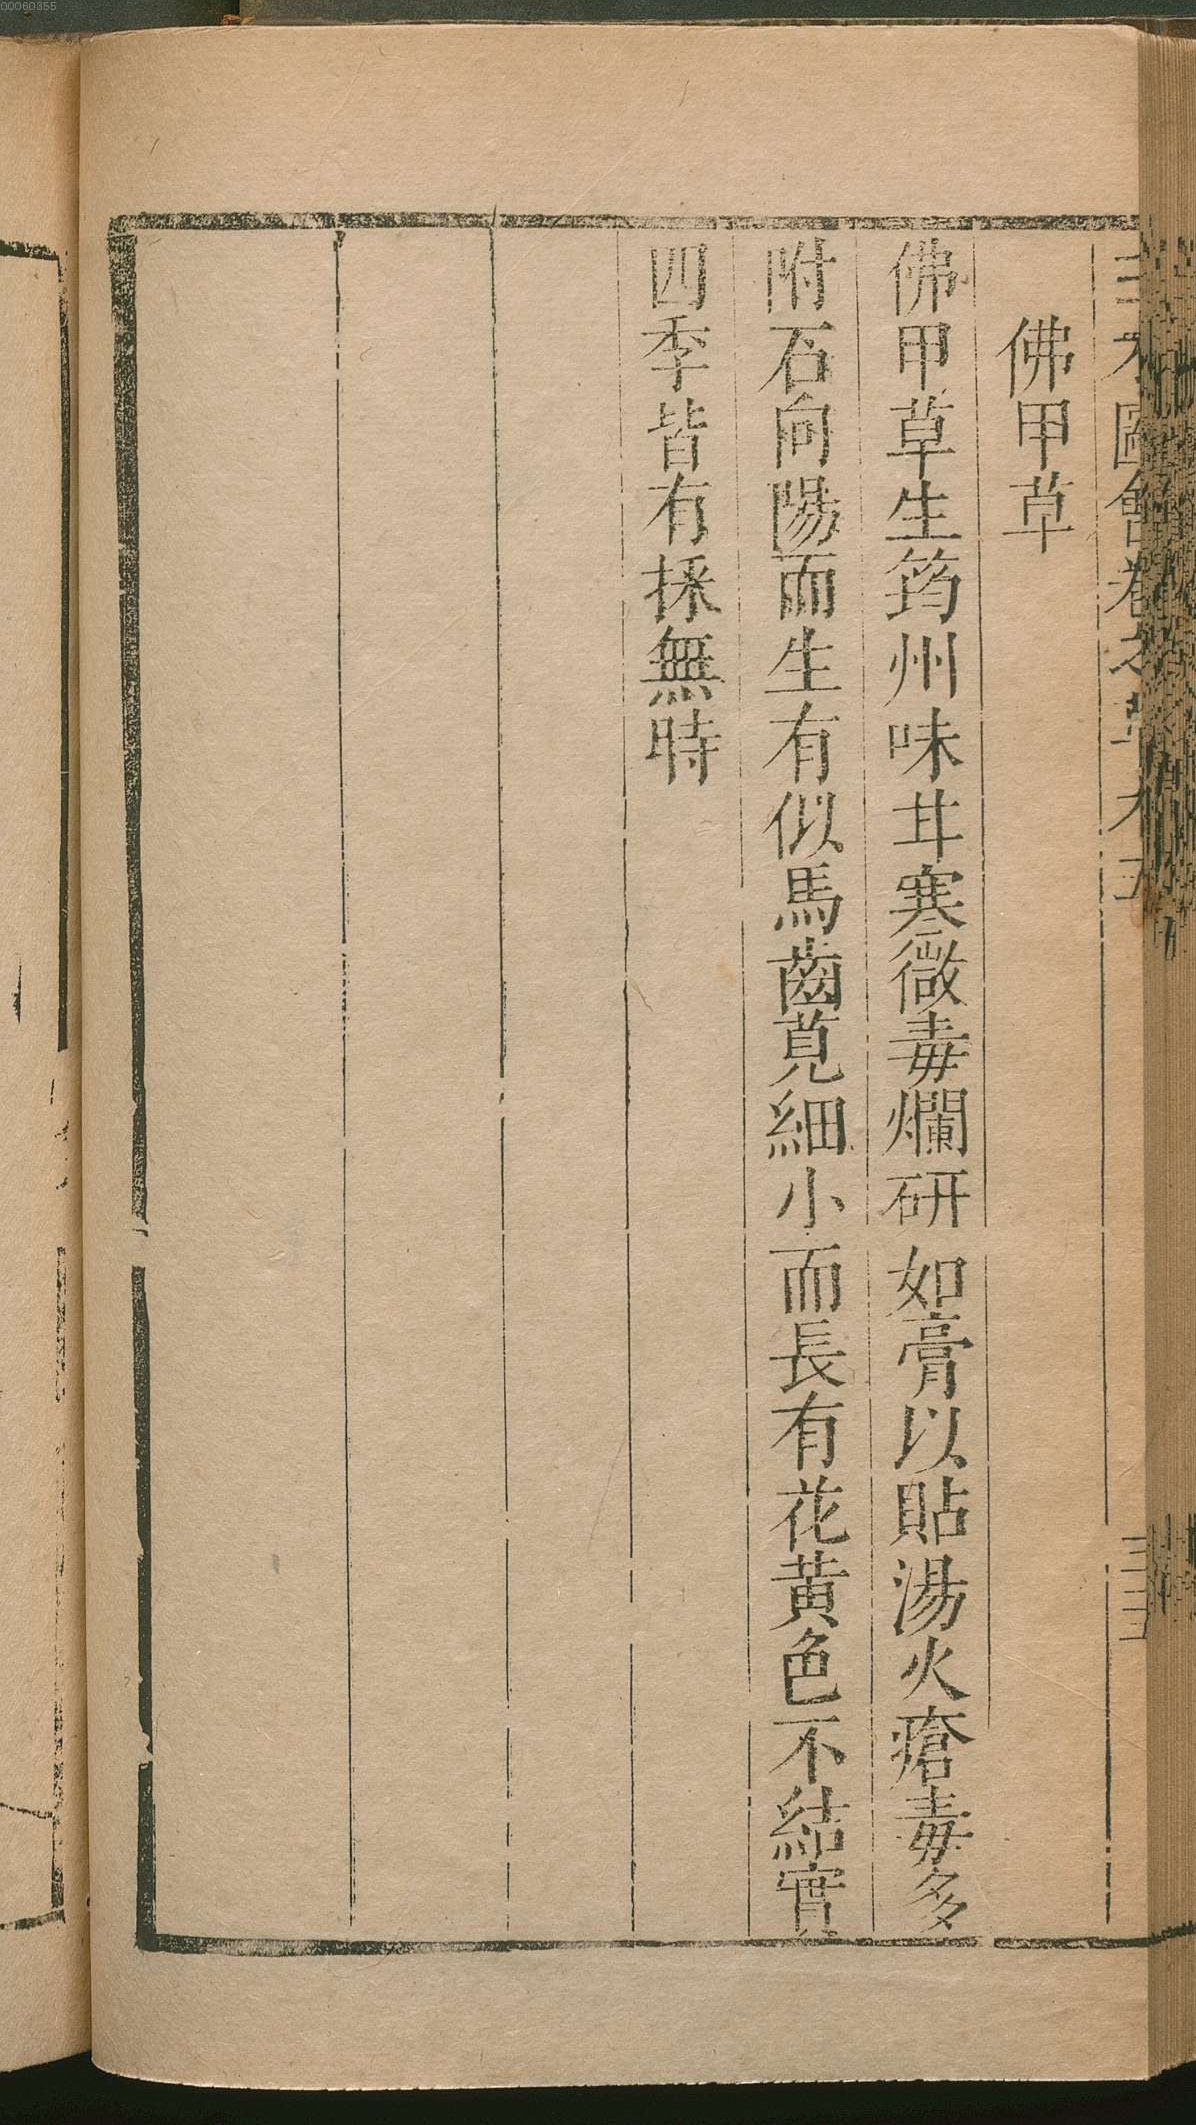 00060355
佛甲草
佛甲草生筠州味甘寒微毒爛研如膏以貼湯火瘡毒多
附石向陽而生有似馬齒莧細小而長有花黃色不結實
四季皆有採無時